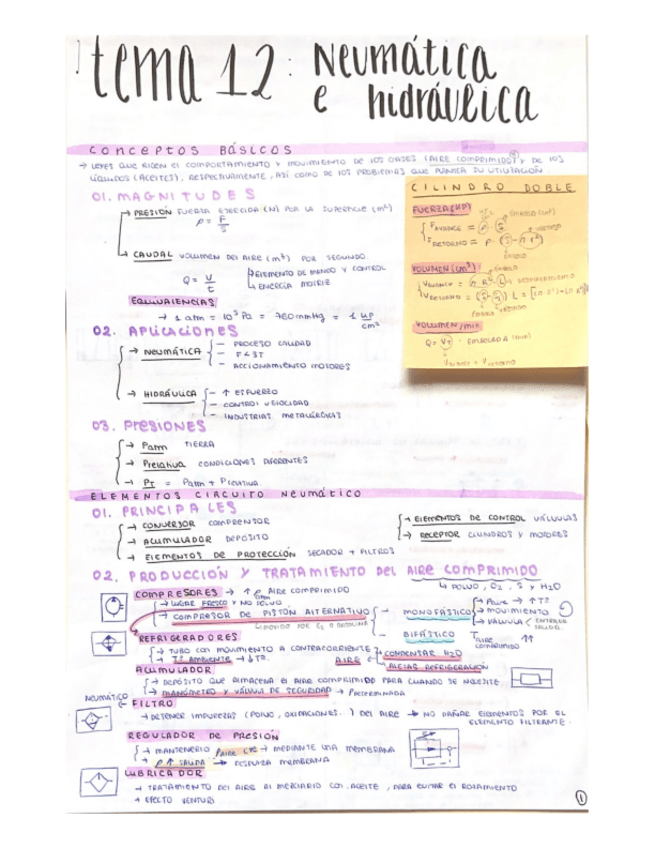 tema 12: Neumática
e hidráulica
Conceptos Básicos
→ Leyes que rigen el comportamiento y movimiento de los gases (aire comprimido) y de los
líquidos (aceites), respectivamente, así como de los problemas que plantea su utilización
01. MAGNITUDES
→ PRESIÓN fuerza ejercida (N) por la superficie (m²)
P = F/S
→ CAUDAL volumen del aire (m³) por segundo.
Q = V/t
elemento de mando y control
energía motriz
Equivalencias
→ 1 atm = 10⁵ Pa = 760 mmHg = 1 kp/cm²
02. Aplicaciones
→ NEUMÁTICA
— PROCESO CALIDAD
— F < 3T
— ACCIONAMIENTO MOTORES
→ HIDRÁULICA
— ↑ ESFUERZO
— CONTROL VELOCIDAD
— INDUSTRIAS METALÚRGICAS
03. Presiones
→ Patm TIERRA
→ Prelativa CONDICIONES DIFERENTES
→ PT = Patm + Prelativa
CILINDRO DOBLE
FUERZA (KP)
Favance = P · S
Fretorno = P ·
VOLUMEN (cm³)
Vavance =
Vretorno =
VOLUMEN/min
Q = VT · EMBOLADA (min)
Vavance + Vretorno
ELEMENTOS CIRCUITO NEUMÁTICO
01. PRINCIPALES
→ CONVERSOR COMPRENSOR
→ ACUMULADOR DEPÓSITO
→ ELEMENTOS DE PROTECCIÓN SECADOR + FILTROS
→ ELEMENTOS DE CONTROL VÁLVULAS
→ RECEPTOR CILINDROS Y MOTORES
02. PRODUCCIÓN Y TRATAMIENTO DEL AIRE COMPRIMIDO
↳ POLVO, O2, S Y H2O
COMPRESORES → ↑ P AIRE COMPRIMIDO
→ LUGAR FRESCO Y NO POLVO
→ COMPRESOR DE PISTÓN ALTERNATIVO
MOVIDO POR
MONOFÁSTICO
→ Paire → ↑ Tª
→ MOVIMIENTO
→ VÁLVULA
BIFÁSTICO
Taire comprimido ↑↑
REFRIGERADORES
→ TUBO CON MOVIMIENTO A CONTRACORRIENTE
→ Tª AMBIENTE → ↓Tª.
AIRE
CONDENSAR H2O
ALETAS REFRIGERACIÓN
ACUMULADOR
→ DEPÓSITO QUE ALMACENA EL AIRE COMPRIMIDO PARA CUANDO SE NECESITE.
→ MANÓMETRO Y VÁLVULA DE SEGURIDAD → PRETERMINADA
NEUMÁTICO
FILTRO
→ DETENER IMPUREZAS (POLVO, OXIDACIONES...) DEL AIRE → NO DAÑAR ELEMENTOS POR EL
ELEMENTO FILTRANTE.
REGULADOR DE PRESIÓN
→ MANTENERLO Paire cte → MEDIANTE UNA MEMBRANA
→ P↑ SALIDA → DESPLAZA MEMBRANA
LUBRICADOR
→ TRATAMIENTO DEL AIRE AL MEZCLARLO CON ACEITE, PARA EVITAR EL ROZAMIENTO
→ EFECTO VENTURI
1